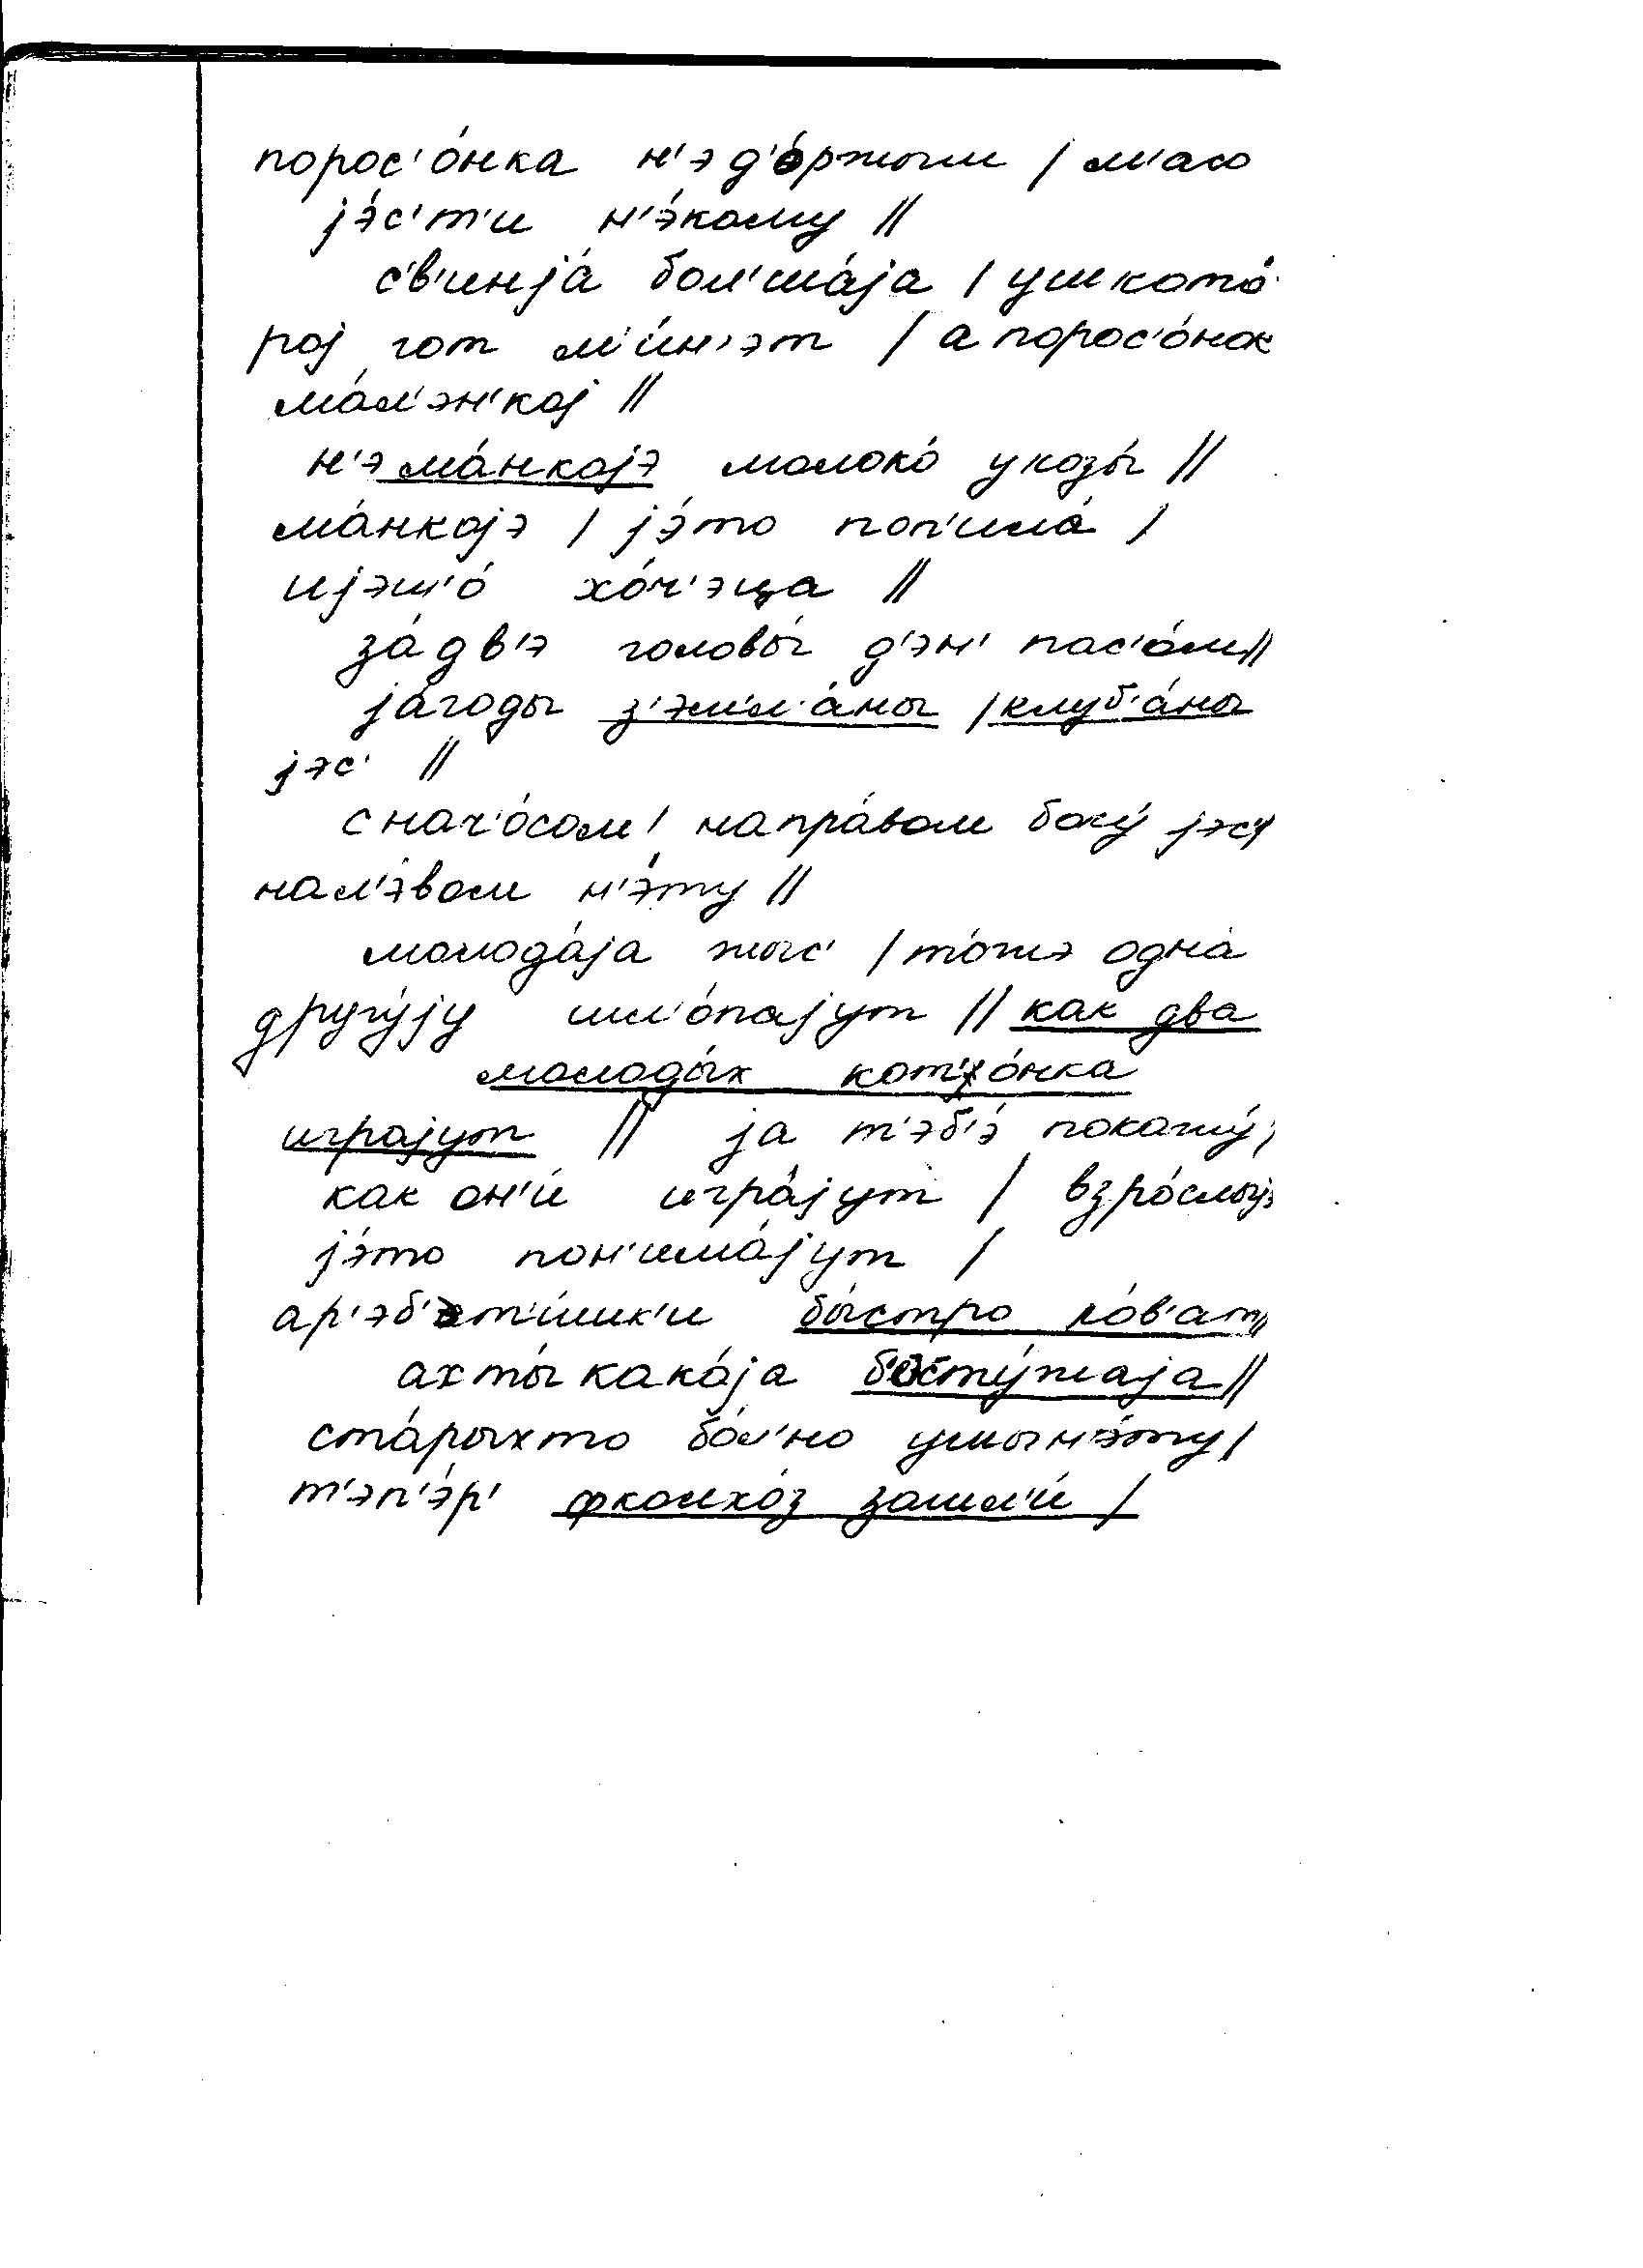 порос'о́нка н'эд'о́ржым / м'асо
jэ́с'т'и н'э́кому //
с'в'инjа́ бол'ша́jа / ушкото́
роj гот м'и́н'эт / а порос'о́нок
ма́л'эн'коj //
н'эма́нкоjэ молоко́ укозы́ //
ма́нкоjэ / jэ́то поп'ила́ /
иjэш'о́ хо́ч'эца //
за́дв'э головы́ д'эн' пас'о́м //
jа́годы з'эм'л'а́ны / клуб'а́ны
jэс' //
с нач'о́сом / напра́вом боку́ jэс' /
нал'э́вом н'э́ту //
молода́jа жыс' / то́жэ одна́
другу́jу шл'о́паjут // как два
молоды́х кот'о́нка
играjут // jа т'эб'э́ покажу́ /
как он'и́ игра́jут / взро́слыjэ
jэ́то пон'има́jут /
ар'эб'ат'и́шк'и бы́стро ло́в'ат //
ахты́ кака́jа б'осту́жаjа //
ста́рыхто бо́л'но ужын'э́ту /
т'эп'э́р' фколхо́з зашл'и́ /